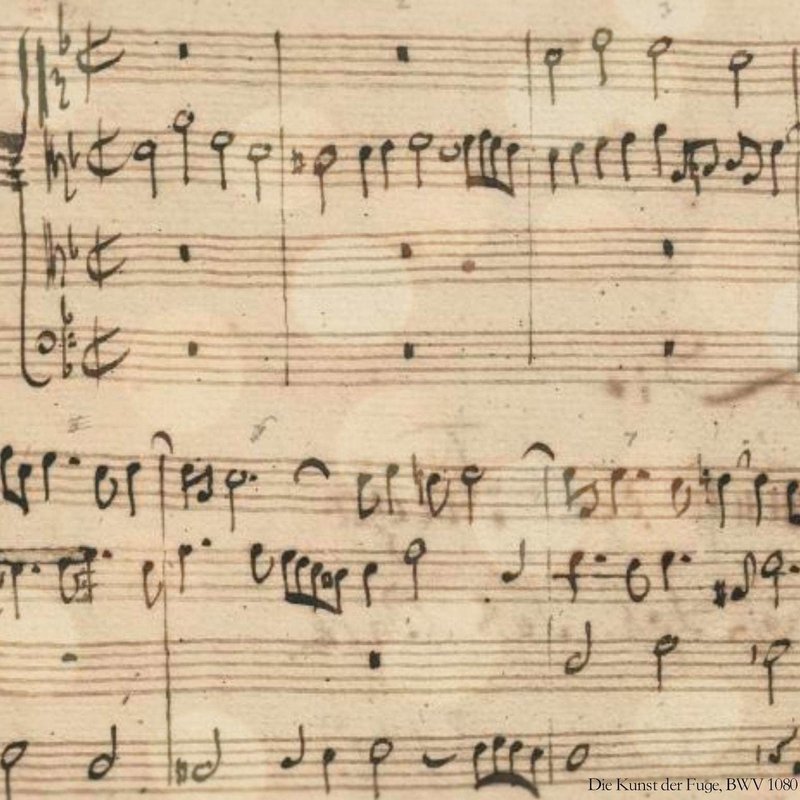 2
3
Die Kunst der Fuge, BWV 1080